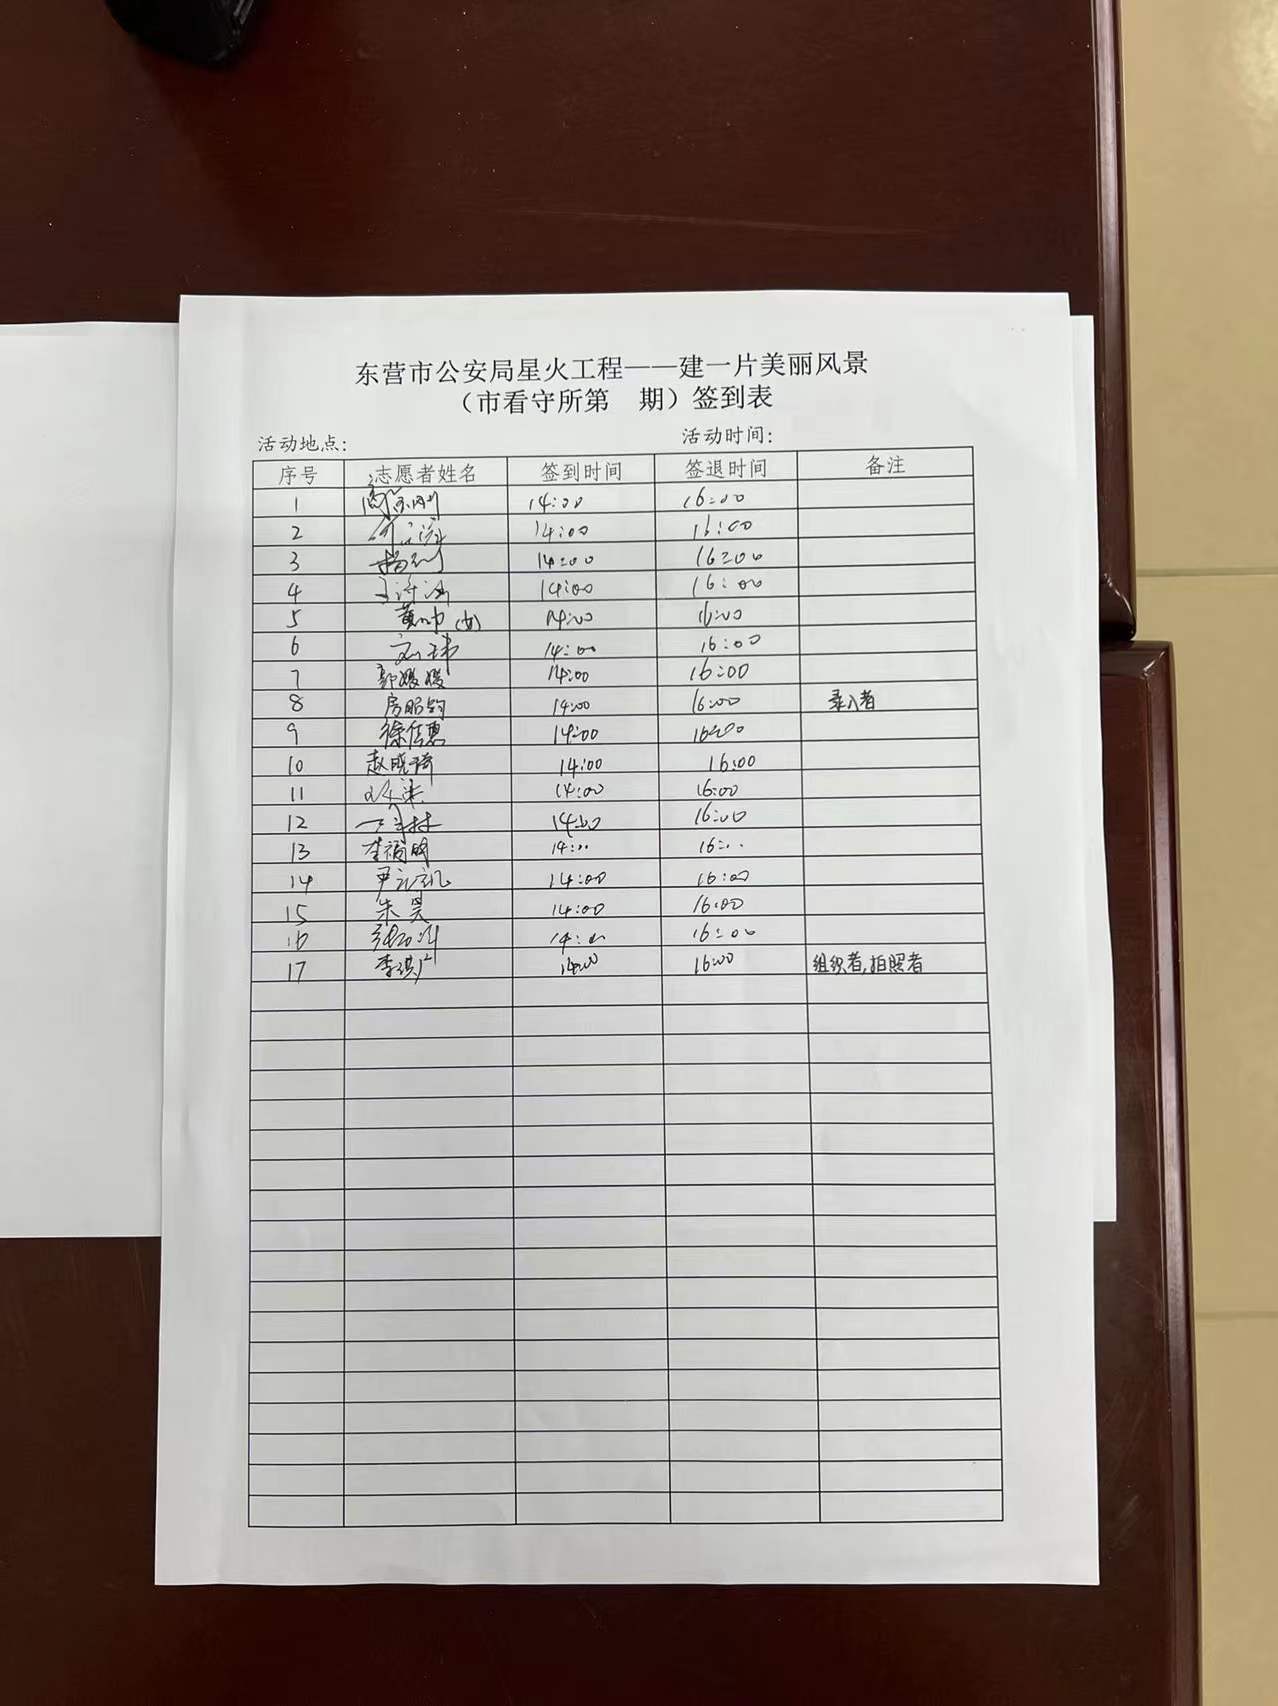 东营市公安局星火工程——建一片美丽风景
（市看守所第 期）签到表
活动地点: 活动时间:
序号 志愿者姓名 签到时间 签退时间 备注
1 14:00 16:00
2 14:00 16:00
3 14:00 16:00
4 14:00 16:00
5 14:00 16:00
6 14:00 16:00
7 郭媛媛 14:00 16:00
8 14:00 16:00 录入者
9 徐佳惠 14:00 16:00
10 赵晓琦 14:00 16:00
11 14:00 16:00
12 14:00 16:00
13 李福明 14:00 16:00
14 14:00 16:00
15 朱昊 14:00 16:00
16 14:00 16:00
17 14:00 16:00 组织者,拍照者